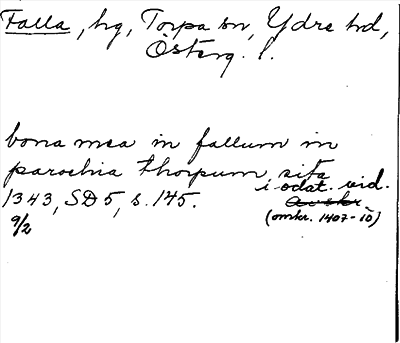 Falla, hg, Torpa sn, Ydre hd,
Österg. l.
bona mea in fallum in
parochia thorpum sita
1343, SD 5, s. 145. i odat. vid.
9/2 (omkr. 1407-10)